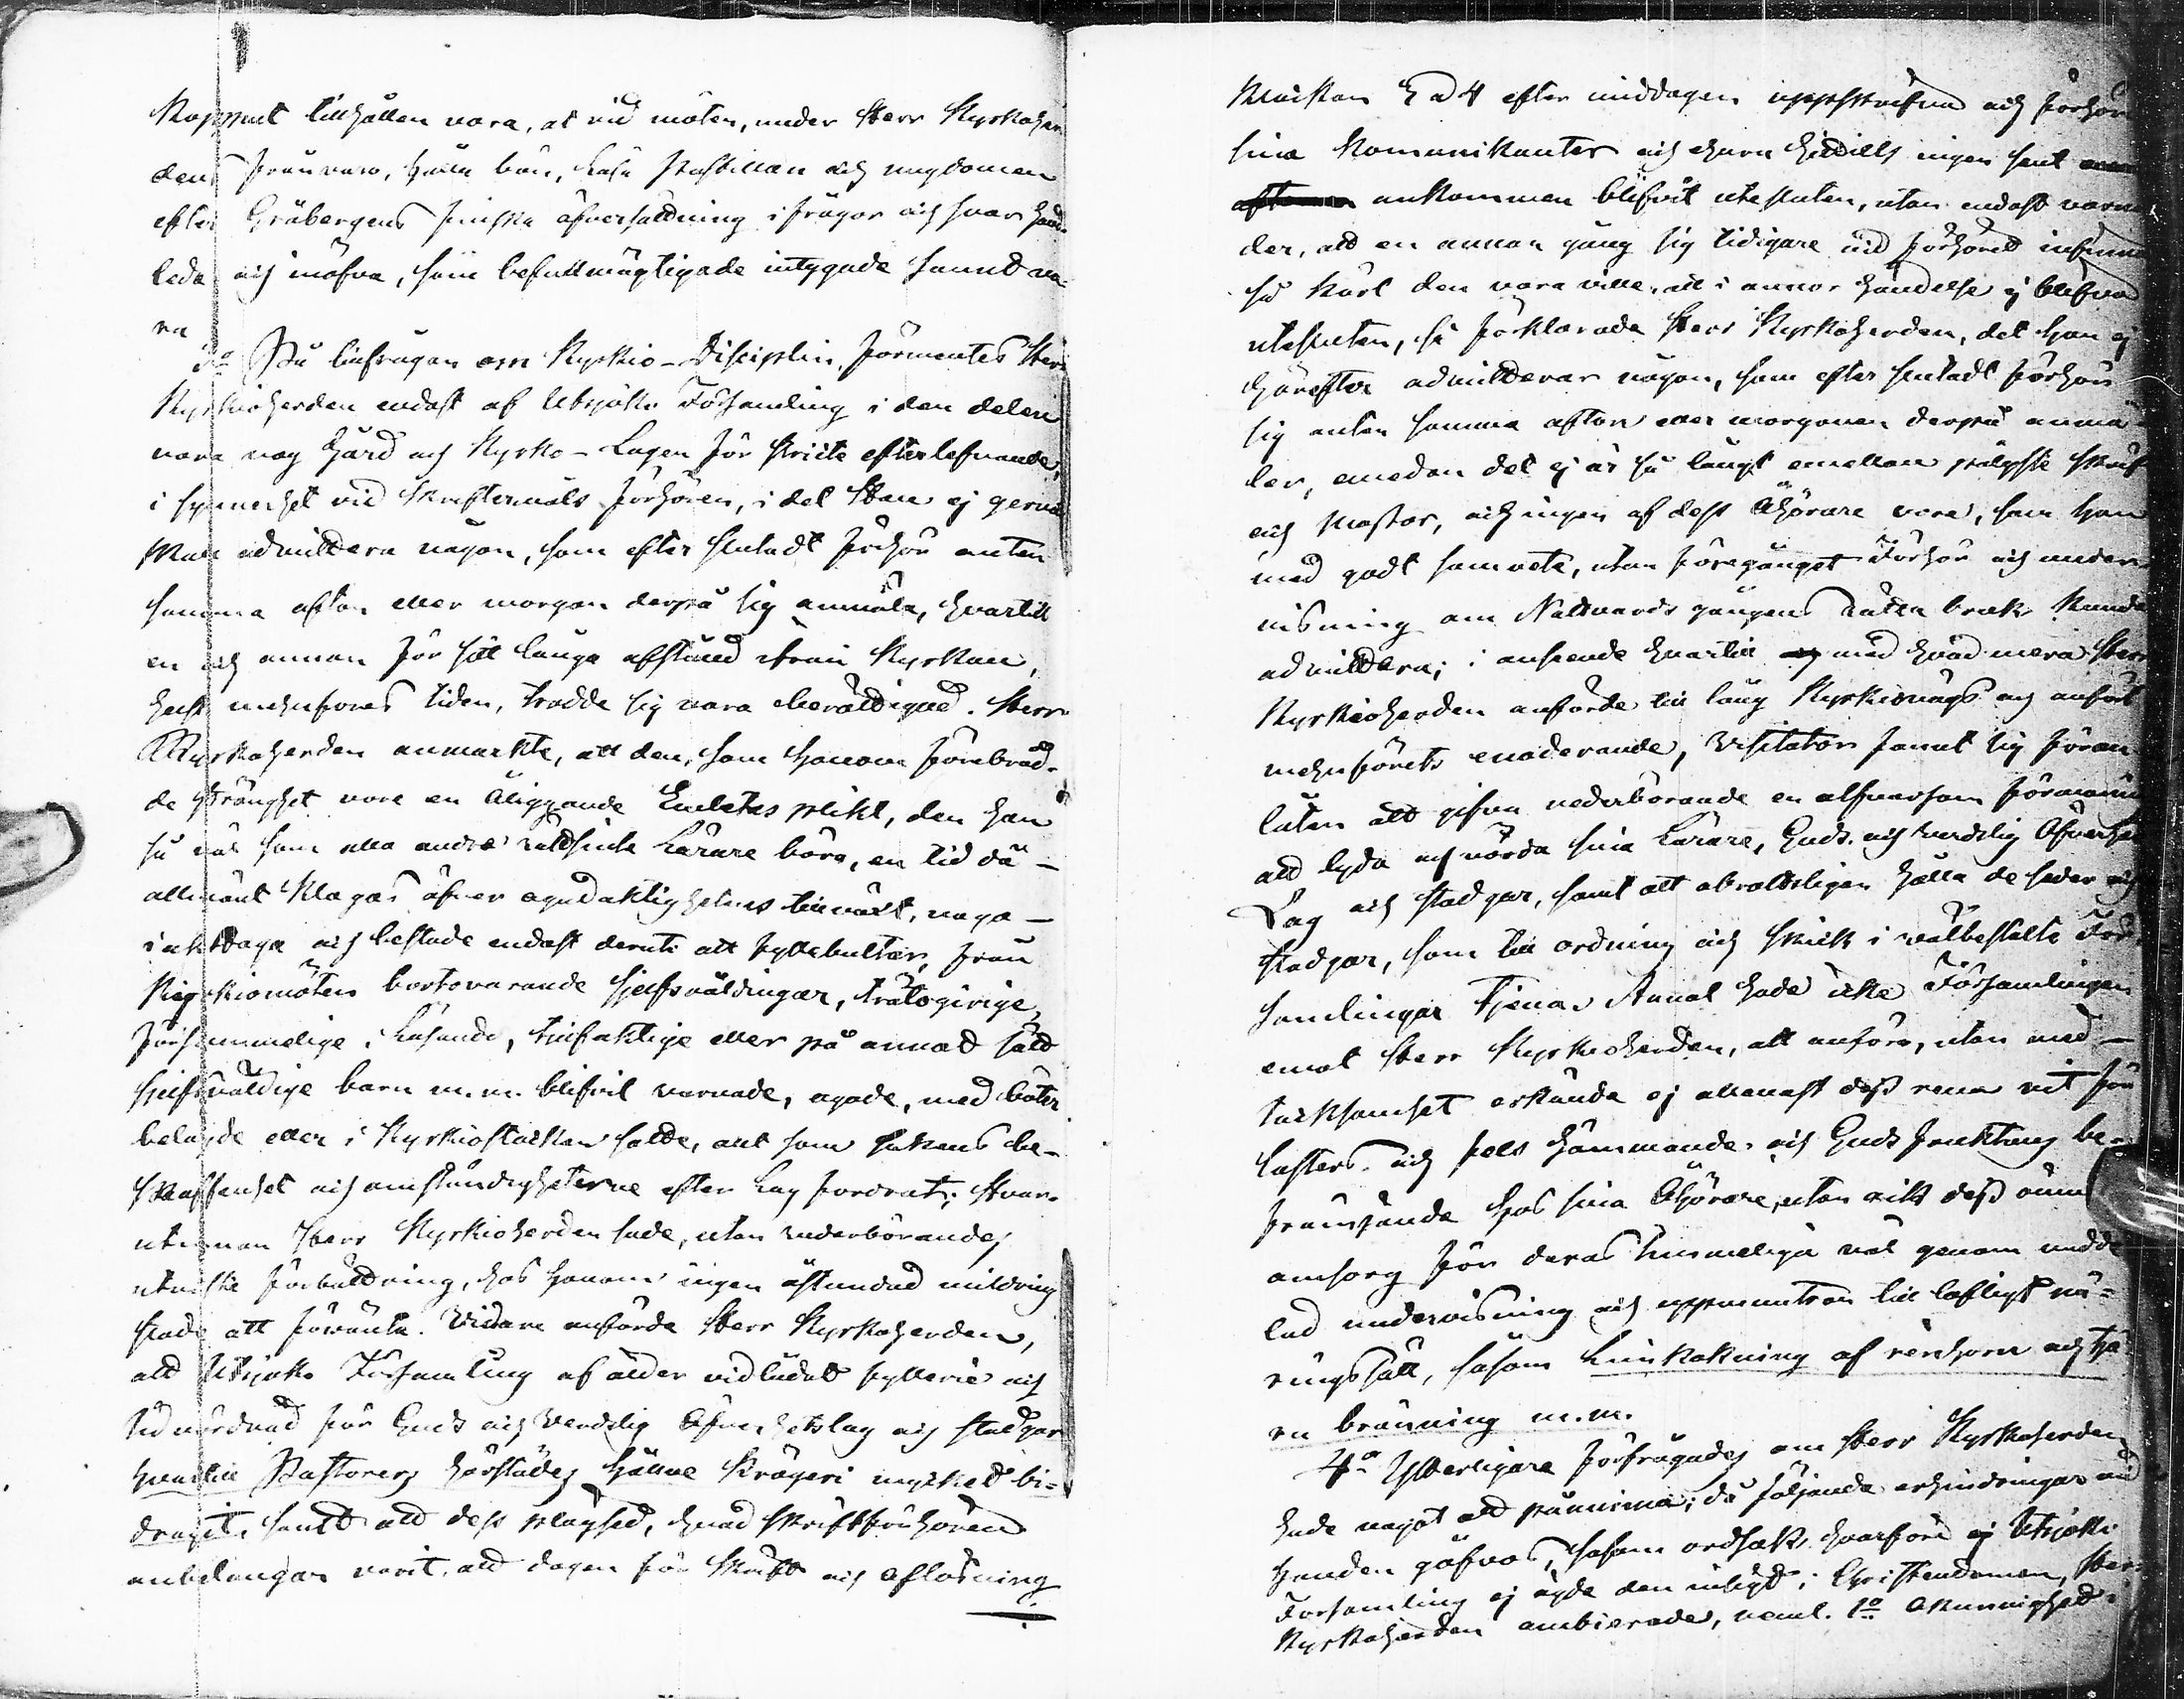 tillhållen vara, at vid möten, under Herr Kyrkoher-
dens frånvaro, hålla bön, läsa Postillan och ungdomen
efter Gråbergens finska öfversättning i frågor och svar hand-
leda och inöfva, som befullmägtigade intygade sannt va-
ra
3o På tilfrågan om Kyrkio-Disciplin, förmentes Herr
Kyrkioherden endast af Utsjoki Församling i den delen
vara nog hård och Kyrko-Lagen för stricte efterlefvande,
i synnerhet vid Skriftermåls förhören, i det Han ej gerna
skall admittera någon, som efter slutadt förhör antin
samma afton eller morgon derpå sig anmäla, hvartill
en och annan för sitt långa afstånd ifrån Kyrkan,
helst menföres tiden, trodde sig vara berättigad. Herr
Kyrkoherden anmärkte, att den, som honom förebråd-
de stränghet vore en åliggande Embetes plikt, den han
så väl som alla andre rättsinte Lärare böra, en tid då
allmänt klagas öfver ogudaktighetens tillväxt, noga
iakttaga och bestode endast deruti att fyllebultar, från
Kyrkiomöten bortovarande sjelfsvåldingar, trätogirige,
försummelige i Läsande, tjufaktige eller på annat sätt
sjelfsvåldige barn m.m. blifvit varnade, agade, med böter
belagde eller i Kyrkiostocken satte, alt som sakens be-
skaffenhet och omständigheterne efter Lag fordrat; Hvar-
utinnan Herr Kyrkioherden sade, utan vederbörandes
utviste förbättring, hos honom ingen åstundad mildring
stode att förvänta. Vidare anförde Herr Kyrkoherden,
att Utsjoki Församling af ålder vid ludat fylleri och
vårdnad för Guds och Verldslig Öfverhetslag och stadgar
hvartill Pastorers härstädes hållne krögeri mycket bi-
dragit, samt att dess plägsed, hvad skriftförhören
anbelangar varit, att dagen för Skrift och Aflösning
Klockan 3 a 4 efter middagen uppskrifva och förhöra
sina Komunikanter och ehuru hittills ingen sent
ankommen blifvit utesluten, utan endast varna-
der, att en annan gång sig tidigare vid förhöret infinna
så kärt den vara ville, att i annor händelse ej blifva
utesluten, så förklarade Herr Kyrkoherden, det han ej
härefter admitterar någon, som efter slutadt förhör
sig antin samma afton eller morgonen derpå anmä-
ler, emedan det ej är så långt emellan
och ingen af dess Åhörare vore, som han
med godt samvete, utan föregånget Förhör och under-
visning om Nattvards gångens rätta bruk kunde
admittera; i anseende hvartill med hvad mera Herr
Kyrkioherden anförde till lång Kyrkiovägs och anfört
menförets enoderande, Visitator fannt sig föran-
låten att gifva vederbörande en alfvarsam förmaning
att lyda och vörda sina Lärare, Guds och Verdslig Öfverhets
Lag och stadgar, samt att obrottsligen hålla de seder och
stadgar, som till ordning och skick i välbestälte För-
samlingar tjena. Annat hade icke Församlingen
emot Herr Kyrkioherden, att anföra, utan med
tacksamhet erkände ej allenast dess rena nit för
lasters och fels hämmande och Guds fruktans be-
främjande hos sina Åhörare, utan och dess ömma
omsorg för deras timmeliga väl genom medde-
lad undervisning och uppmuntran till lofligt nä-
ringssätt, såsom Limkokning af renhorn och tjä-
ru bränning m.m.
4o Ytterligare förfrågades om Herr Kyrkoherden
hade något att påminna; då följande erhindringar vid
handen gåfvos, såsom ordsak, hvarföre ej Utsjoki
Församling ej ägde den insigt i Christendomen, Herr
Kyrkoherden ambierade, neml. 1o Okunnighet i